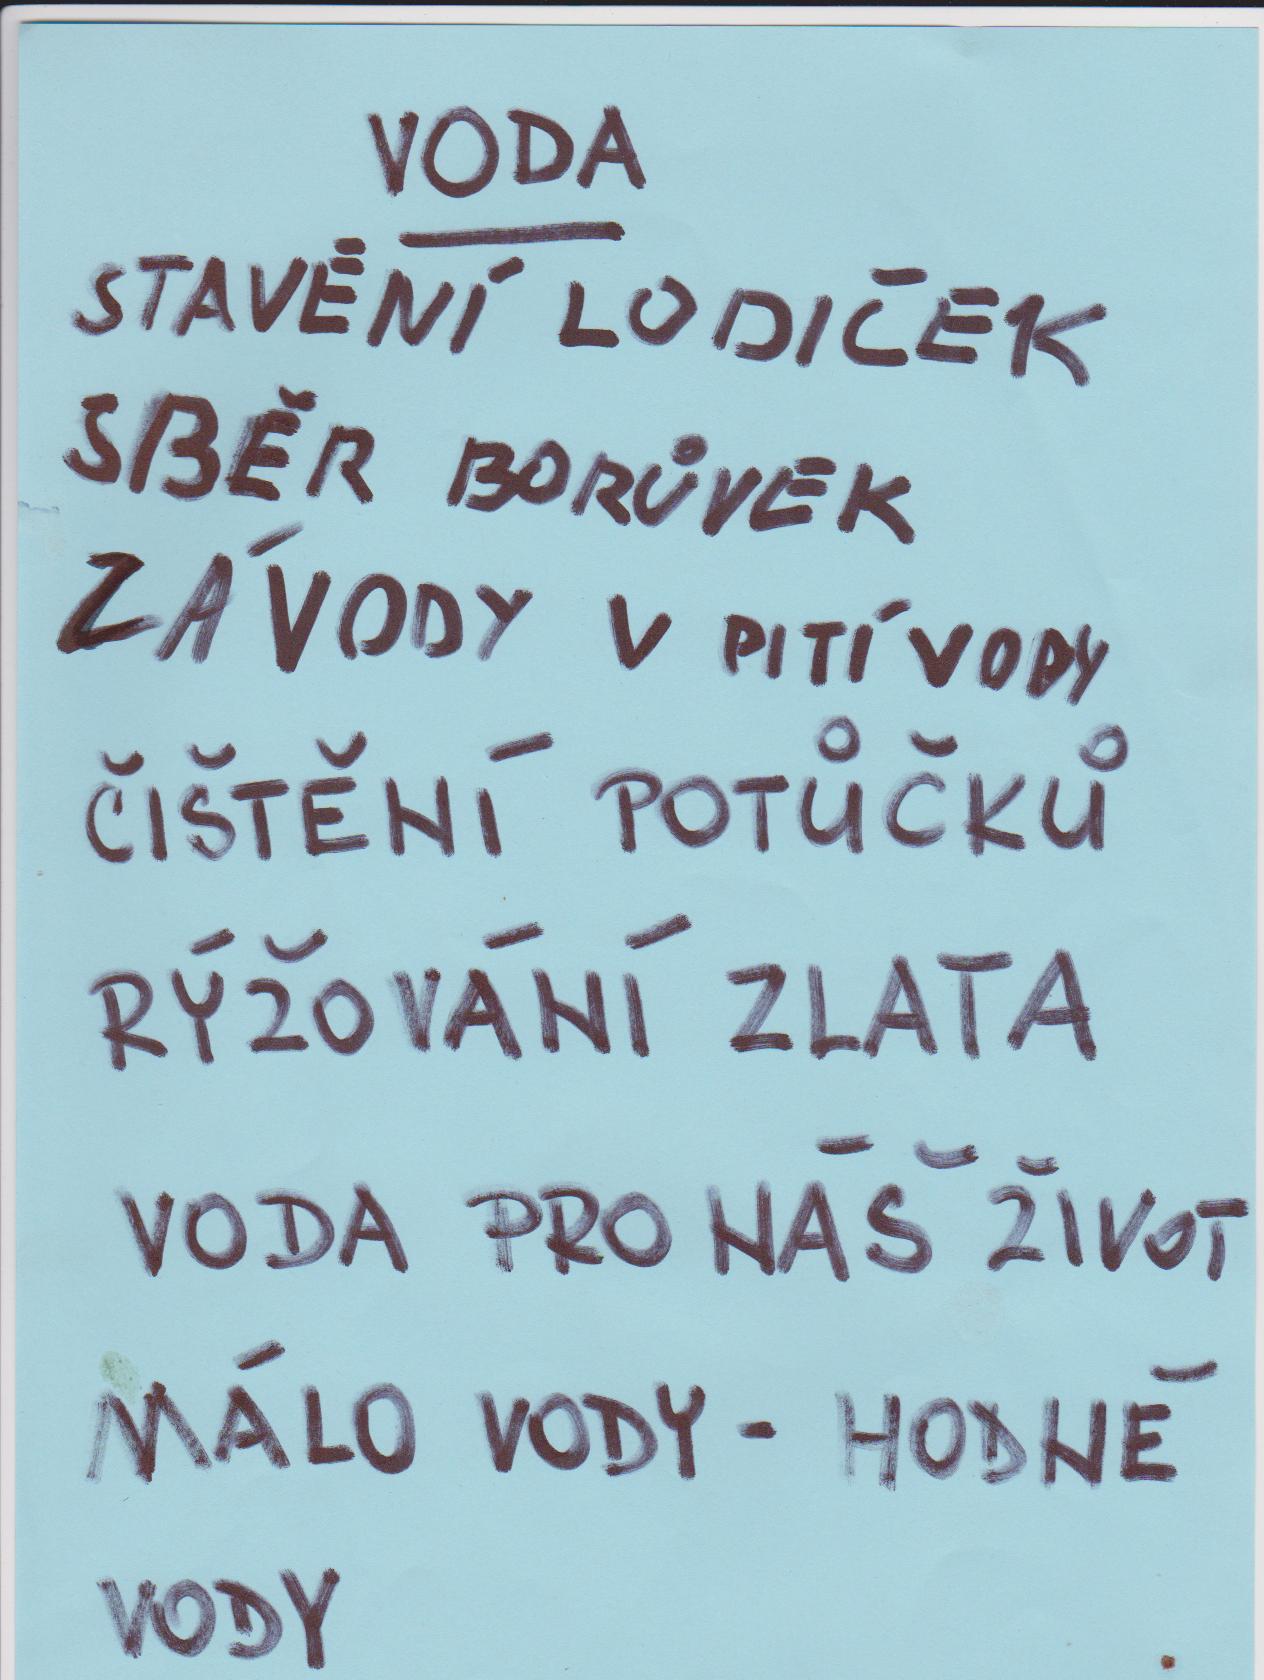 VODA
STAVĚNÍ LODIČEK
SBĚR BORŮVEK
ZÁVODY V PITÍ VODY
ČIŠTĚNÍ POTŮČKŮ
RÝŽOVÁNÍ ZLATA
VODA PRO NÁŠ ŽIVOT
MÁLO VODY - HODNĚ
VODY